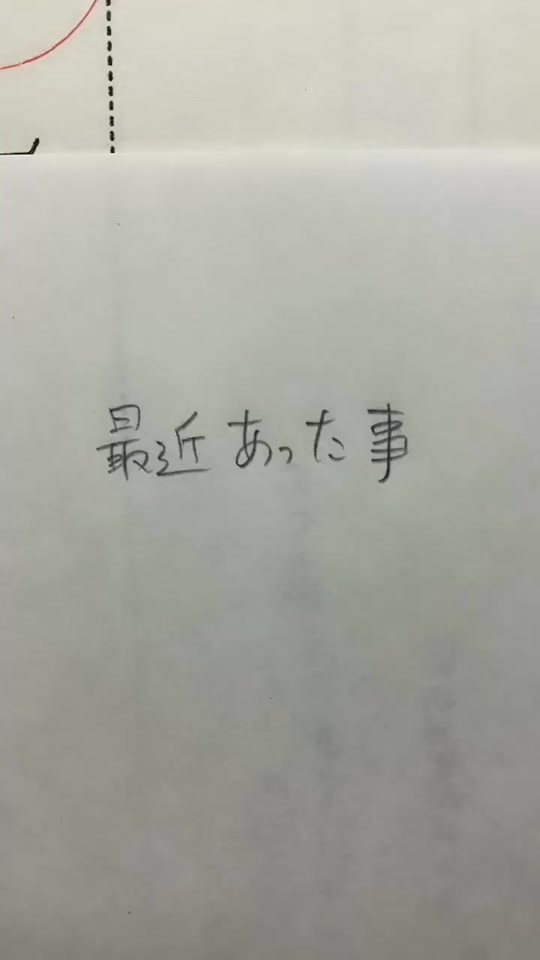 最近あった事